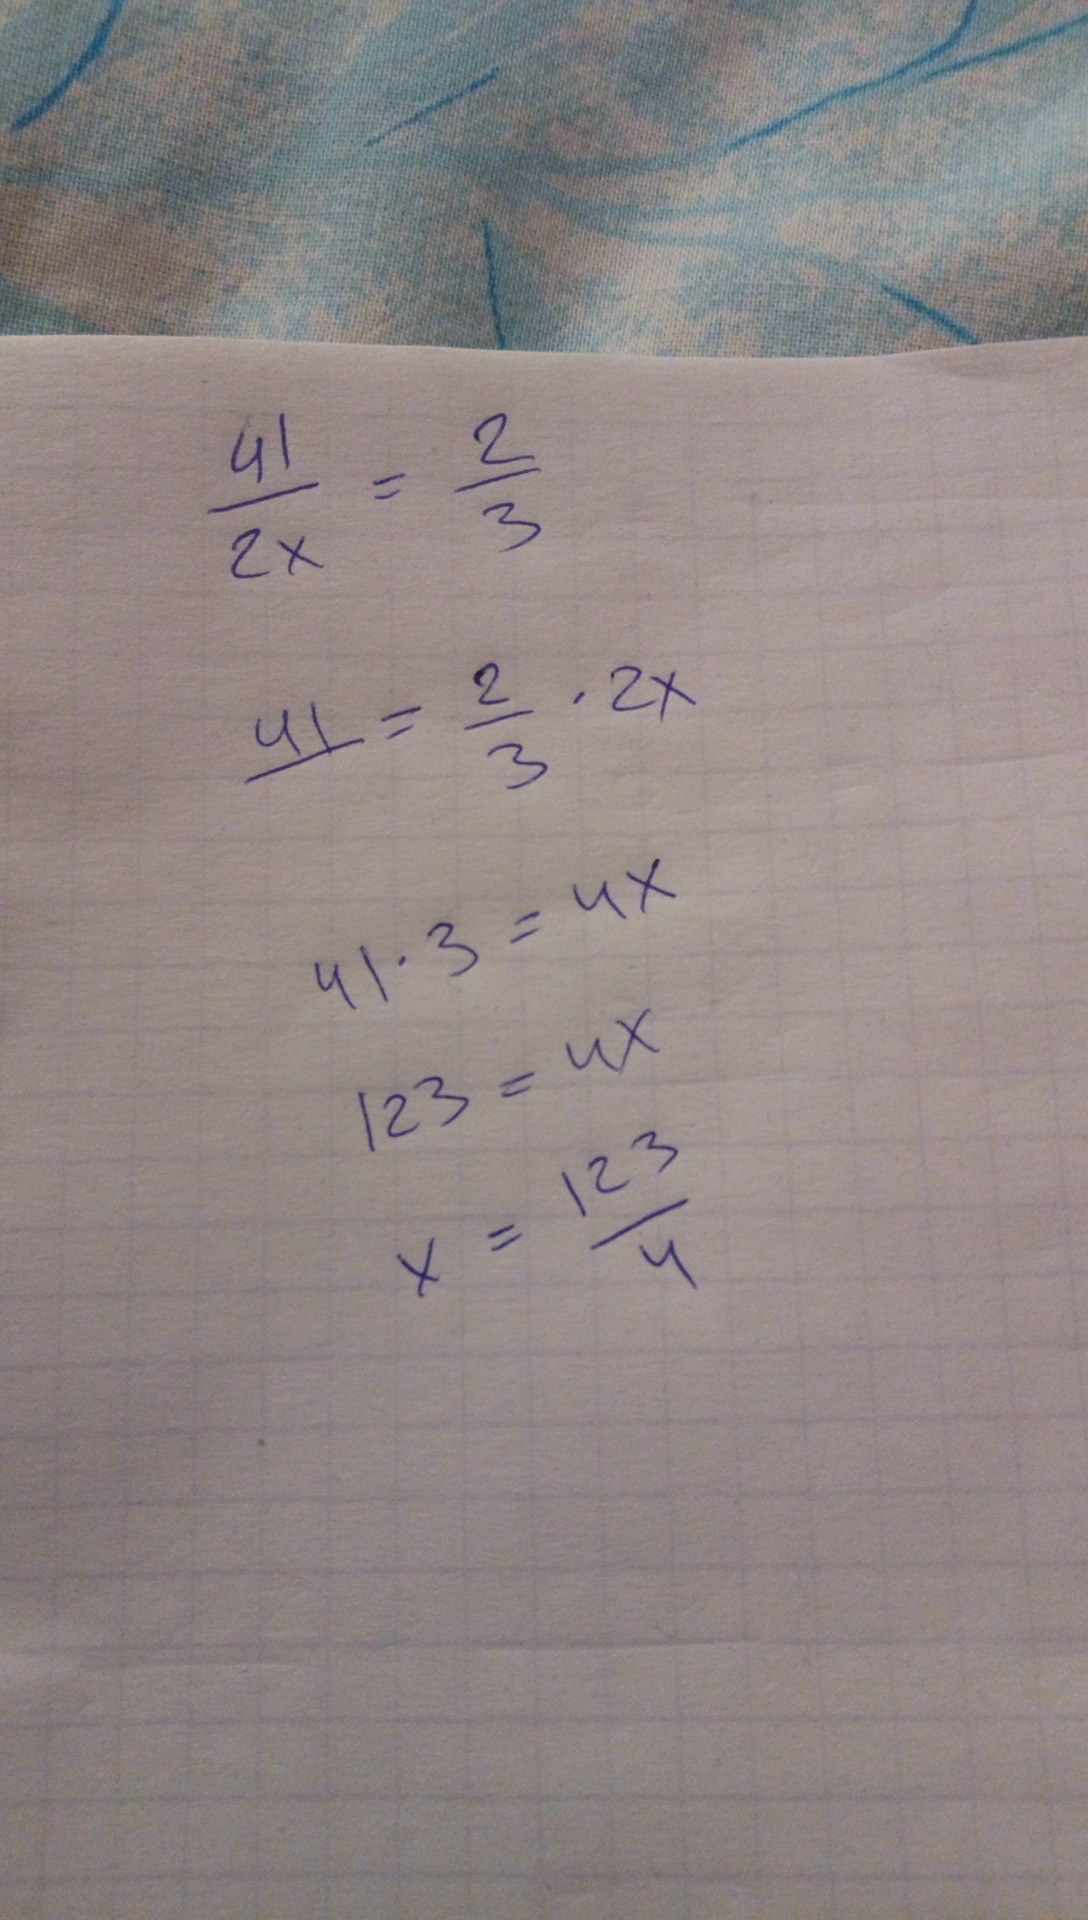 41/2x = 2/3
41 = 2/3 · 2x
41·3 = 4x
123 = 4x
x = 123/4